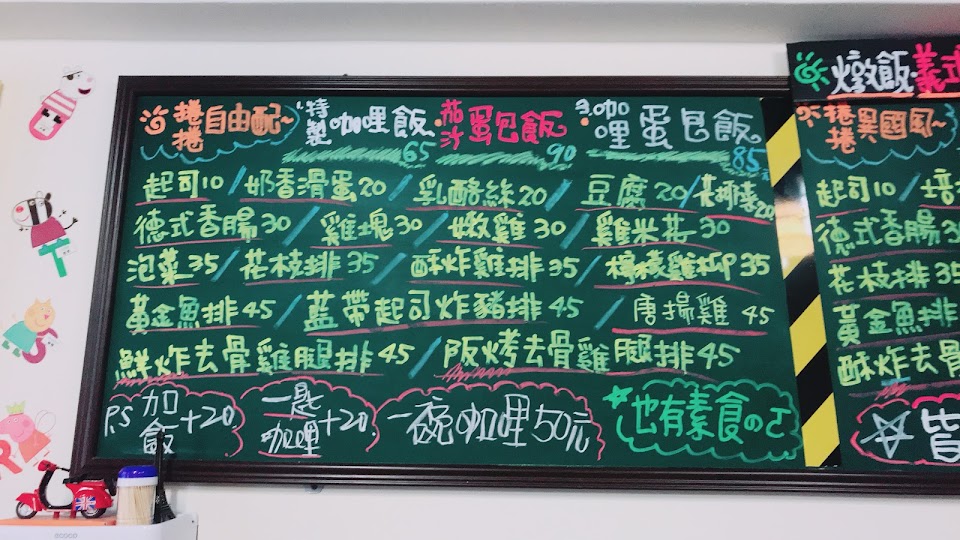 捲捲自由配~
1.特製咖哩飯 65
2.茄沙蛋包飯 90
3.咖哩蛋包飯 85
起司10/奶香滑蛋20/乳酪絲20/豆腐20/
德式香腸30/雞塊30/嫩雞30/雞米花30
泡菜35/花枝排35/酥炸雞排35/檸檬雞柳35
黃金魚排45/藍帶起司炸豬排45/唐揚雞45
鮮炸去骨雞腿排45/阪烤去骨雞腿排45
P.S 加飯+20
一匙咖哩+20.
一碗咖哩50元
也有素食ので
燉飯 義式
捲捲異國風~
起司10/培
德式香腸3
花枝排35
黃金魚排
酥炸去骨
皆